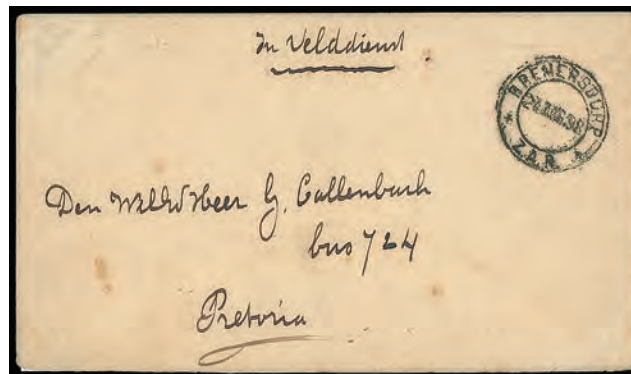 In Velddienst
BREMERSDORP
Z.A.R.
Den WelEd Heer G. Callenbach
bus 724
Pretoria